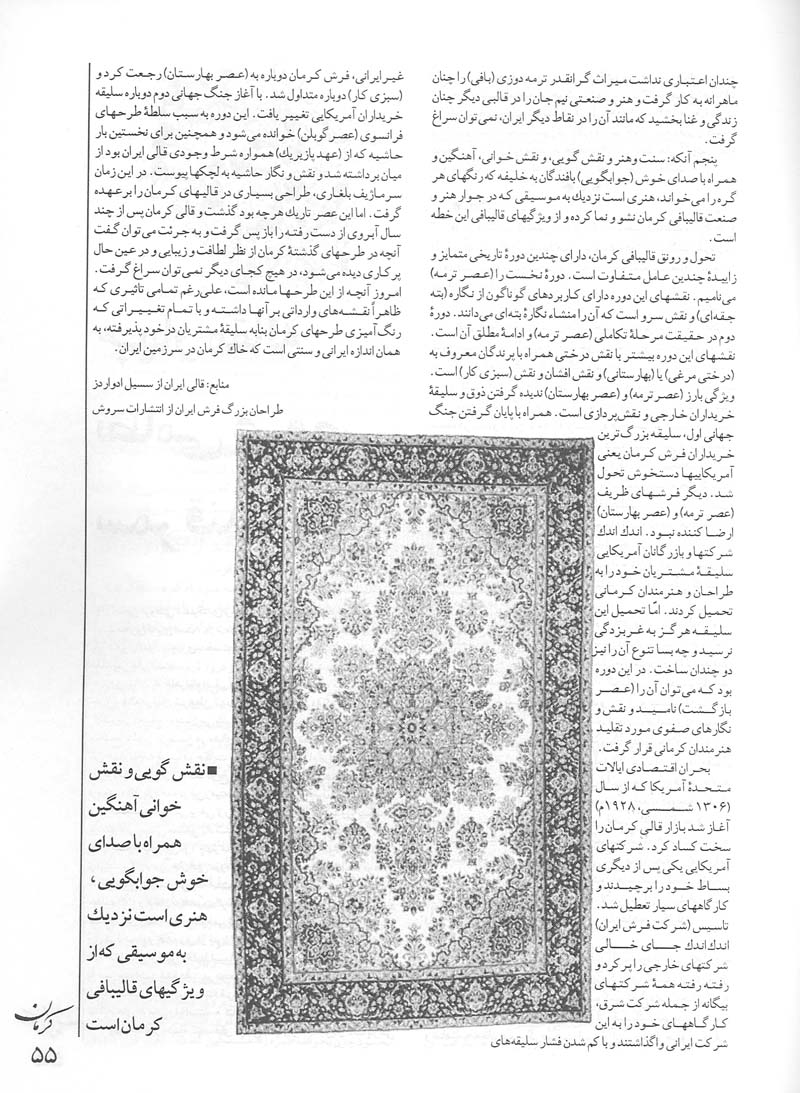 چندان اعتباری نداشت میراث گرانقدر ترمه دوزی (بافی) را چنان
ماهرانه به کار گرفت و هنر و صنعتی نیم جان را در قالبی دیگر چنان
زندگی و غنا بخشید که مانند آن را در نقاط دیگر ایران، نمی‌توان سراغ
گرفت.
پنجم آنکه: سنت وهنر و نقش گویی، و نقش خوانی، آهنگین و
همراه با صدای خوش (جوابگویی) بافندگان به خلیفه که رنگهای هر
گره را می‌خواند، هنری است نزدیك به موسیقی که در جوار هنر و
صنعت قالیبافی کرمان نشو و نما کرده و از ویژگیهای قالیبافی این خطه
است.
تحول و رونق قالیبافی کرمان، دارای چندین دورهٔ تاریخی متمایز و
زاییدهٔ چندین عامل متفاوت است. دورهٔ نخست را (عصر ترمه)
می‌نامیم. نقشهای این دوره دارای کاربردهای گوناگون از نگاره (بته
جقه‌ای) و نقش سرو است که آن را منشاء نگارهٔ بته‌ای می‌دانند. دورهٔ
دوم در حقیقت مرحلهٔ تکاملی (عصر ترمه) و ادامهٔ مطلق آن است.
نقشهای این دوره بیشتر با نقش درختی همراه با پرندگان معروف به
(درختی مرغی) یا (بهارستانی) و نقش افشان و نقش (سبزی کار) است.
ویژگی بارز (عصرترمه) و (عصر بهارستان) ندیده گرفتن ذوق و سلیقهٔ
خریداران خارجی و نقش‌پردازی است. همراه با پایان گرفتن جنگ
جهانی اول، سلیقه بزرگ‌ترین
خریداران فرش کرمان یعنی
آمریکاییها دستخوش تحول
شد. دیگر فرشهای ظریف
(عصر ترمه) و (عصر بهارستان)
ارضا کننده نبود. اندك اندك
شرکتها و بازرگانان آمریکایی
سلیقهٔ مشتریان خود را به
طراحان و هنرمندان کرمانی
تحمیل کردند. امّا تحمیل این
سلیقه هرگز به غربزدگی
نرسید و چه بسا تنوع آن را نیز
دو چندان ساخت. در این دوره
بود که می‌توان آن را (عصر
بازگشت) نامید و نقش و
نگارهای صفوی مورد تقلید
هنرمندان کرمانی قرار گرفت.
بحران اقتصادی ایالات
متحدهٔ آمریکا که از سال
(۱۳۰۶ شمسی، ۱۹۲۸م)
آغاز شد بازار قالی کرمان را
سخت کساد کرد. شرکتهای
آمریکایی یکی پس از دیگری
بساط خود را برچیدند و
کارگاههای سیار تعطیل شد.
تاسیس (شرکت فرش ایران)
اندك اندك جای خالی
شرکتهای خارجی را پر کرد و
رفته رفته همهٔ شرکتهای
بیگانه از جمله شرکت شرق،
کارگاههای خود را به این
شرکت ایرانی واگذاشتند و با کم شدن فشار سلیقه‌های
غیرایرانی، فرش کرمان دوباره به (عصر بهارستان) رجعت کرد و
(سبزی کار) دوباره متداول شد. با آغاز جنگ جهانی دوم دوباره سلیقه
خریداران آمریکایی تغییر یافت. این دوره به سبب سلطهٔ طرحهای
فرانسوی (عصر گوبلن) خوانده می‌شود و همچنین برای نخستین بار
حاشیه که از (عهد پازیریك) همواره شرط وجودی قالی ایران بود از
میان برداشته شد و نقش و نگار حاشیه به لچکها پیوست. در این زمان
سرماژیف بلغاری، طراحی بسیاری در قالیهای کرمان را برعهده
گرفت. اما این عصر تاریك هرچه بود گذشت و قالی کرمان پس از چند
سال آبروی از دست رفته را باز پس گرفت و به جرئت می‌توان گفت
آنچه در طرحهای گذشتهٔ کرمان از نظر لطافت و زیبایی و در عین حال
پرکاری دیده می‌شود، در هیچ کجای دیگر نمی‌توان سراغ گرفت.
امروز آنچه از این طرحها مانده است، علی‌رغم تمامی تاثیری که
ظاهراً نقشه‌های وارداتی بر آنها داشته و با تمام تغییراتی که
رنگ‌آمیزی طرحهای کرمان بنابه سلیقهٔ مشتریان درخود پذیرفته، به
همان اندازه ایرانی و سنتی است که خاك کرمان در سرزمین ایران.
منابع: قالی ایران از سسیل ادواردز
طراحان بزرگ فرش ایران از انتشارات سروش
■ نقش گویی و نقش
خوانی آهنگین
همراه با صدای
خوش جوابگویی،
هنری است نزدیك
به موسیقی که از
ویژگیهای قالیبافی
کرمان است
کرمان
۵۵